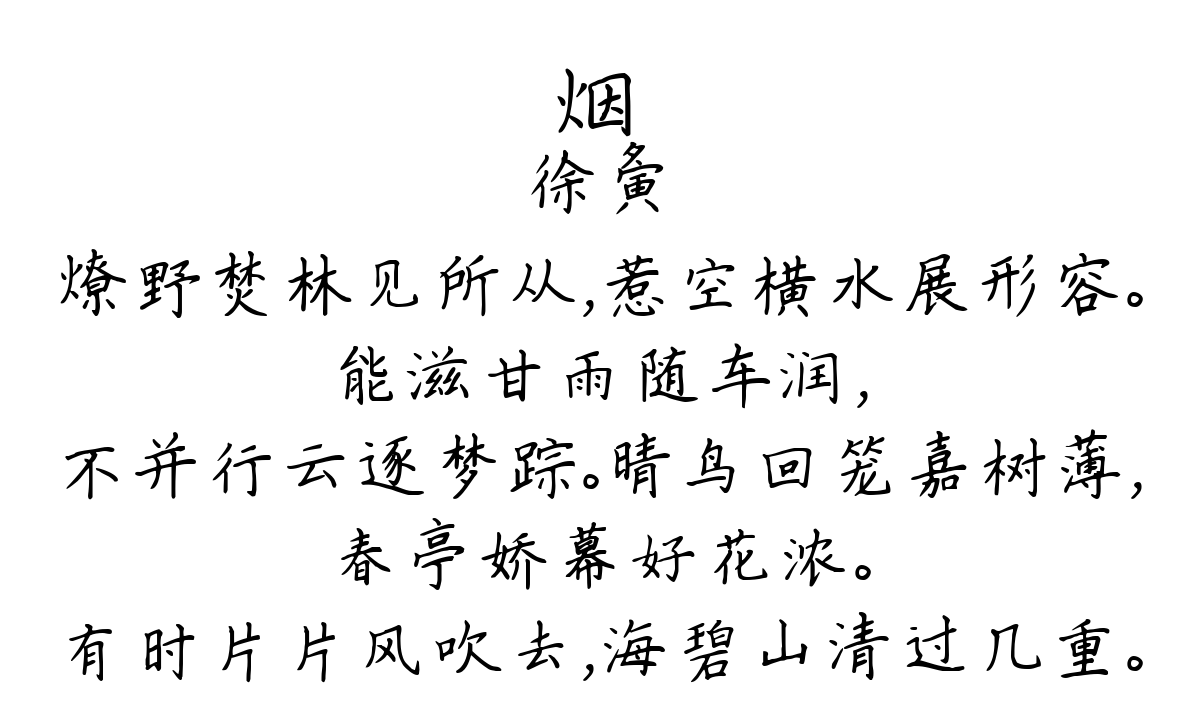 烟
徐夤
燎野焚林见所从,惹空横水展形容。
能滋甘雨随车润,
不并行云逐梦踪。晴鸟回笼嘉树薄,
春亭娇幕好花浓。
有时片片风吹去,海碧山清过几重。